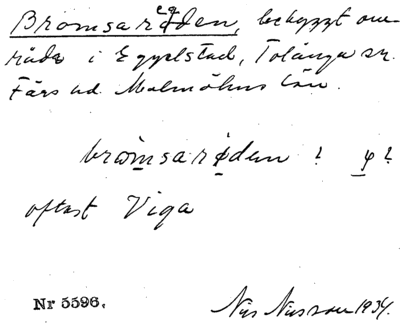 Bromsarøden, bebyggt om-
råde i Eggelstad, Tolånga sn.
Färs hd. Malmöhus län.
bromsarøden? y?
oftast Viga
Nr 5596. Nils Nilsson 1934.